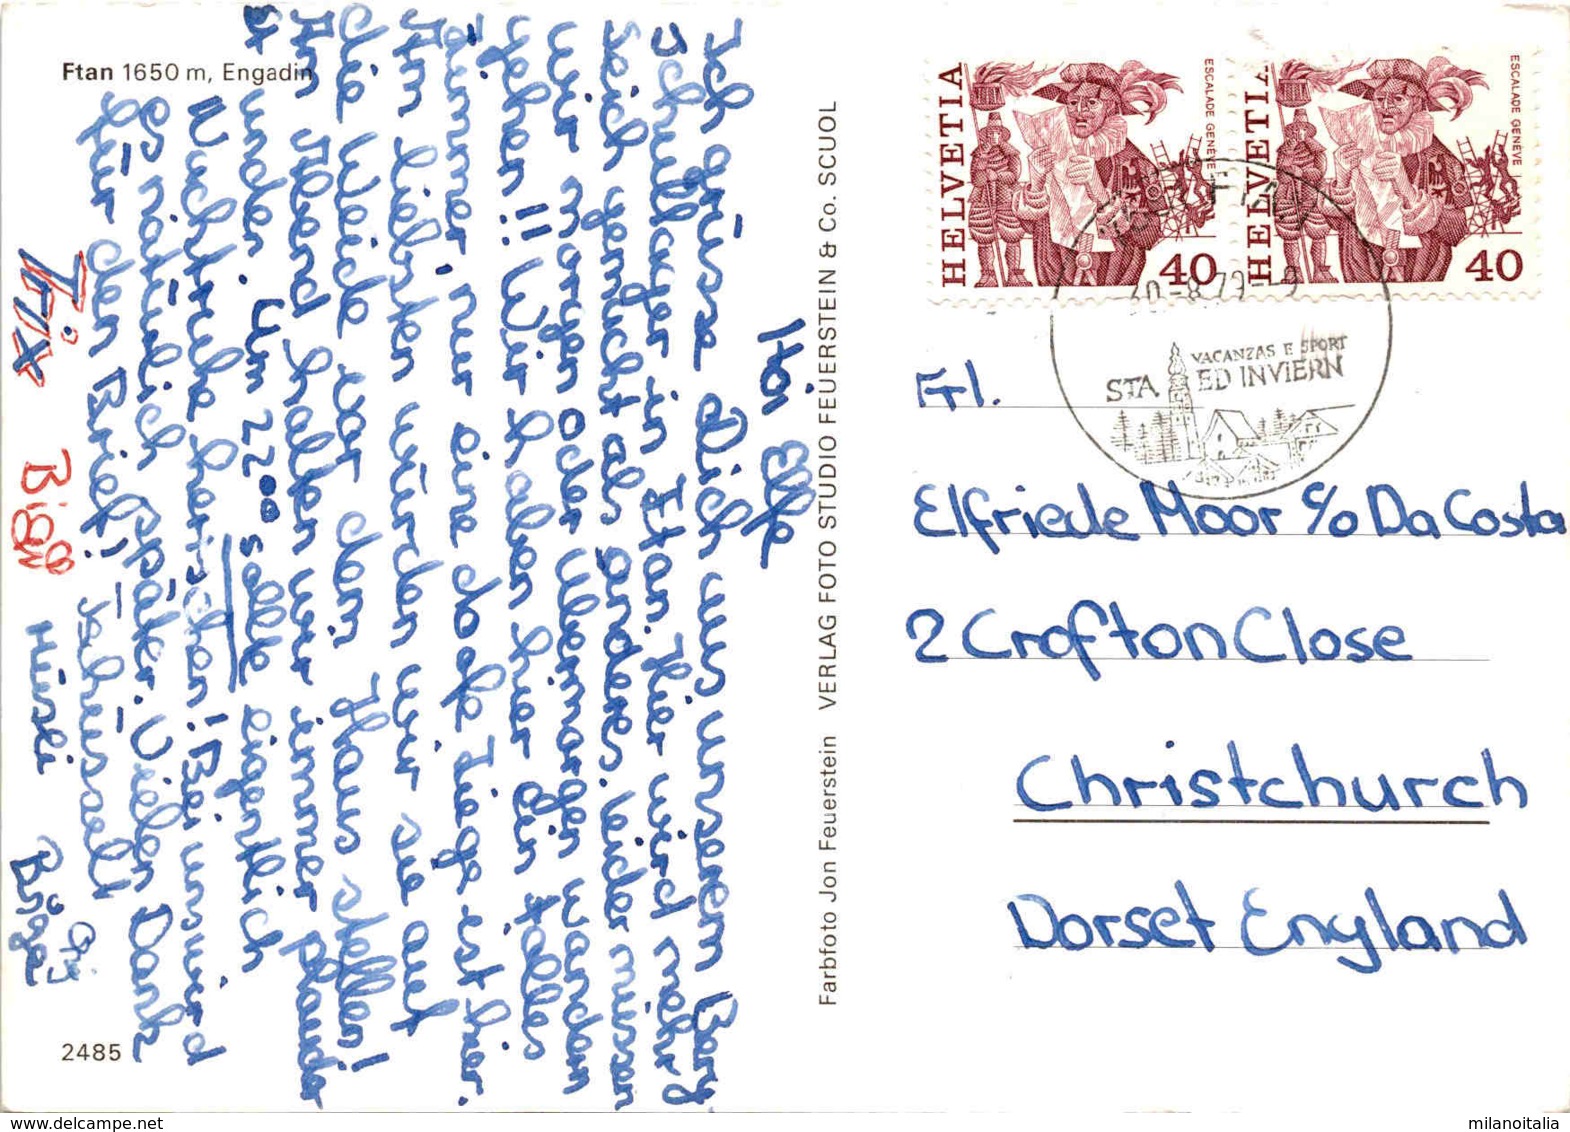 Ftan 1650 m, Engadin
Hoi Elfe
Ich grüsse Dich aus unserem Berg
Schullager in Ftan. Hier wird mehr
Seich gemacht als anderes. Leider müssen
wir morgen oder übermorgen wandern
gehen!! Wir haben hier ein tolles
Zimmer, nur eine doofe Ziege ist hier.
Am liebsten würden wir sie auf
die Weide vor dem Haus stellen!
Am Abend halten wir immer plauder
stunden. Um 22⁰⁰ sollte eigentlich
Nachtruhe herrschen! Bei uns wird
es natürlich später. Vielen Dank
für den Brief!
Tschüssäli
Trix
Bigi
Hüsli
Brüga
2485
Farbfoto Jon Feuerstein VERLAG FOTO STUDIO FEUERSTEIN & Co. SCUOL
HELVETIA
ESCALADE GENÈVE
40
HELVETIA
ESCALADE GENÈVE
40
30.-8.79-9
VACANZAS E SPORT
STA ED INVIERN
Frl.
Elfriede Moor c/o Da Costa
2 Crofton Close
Christchurch
Dorset England
milanoitalia